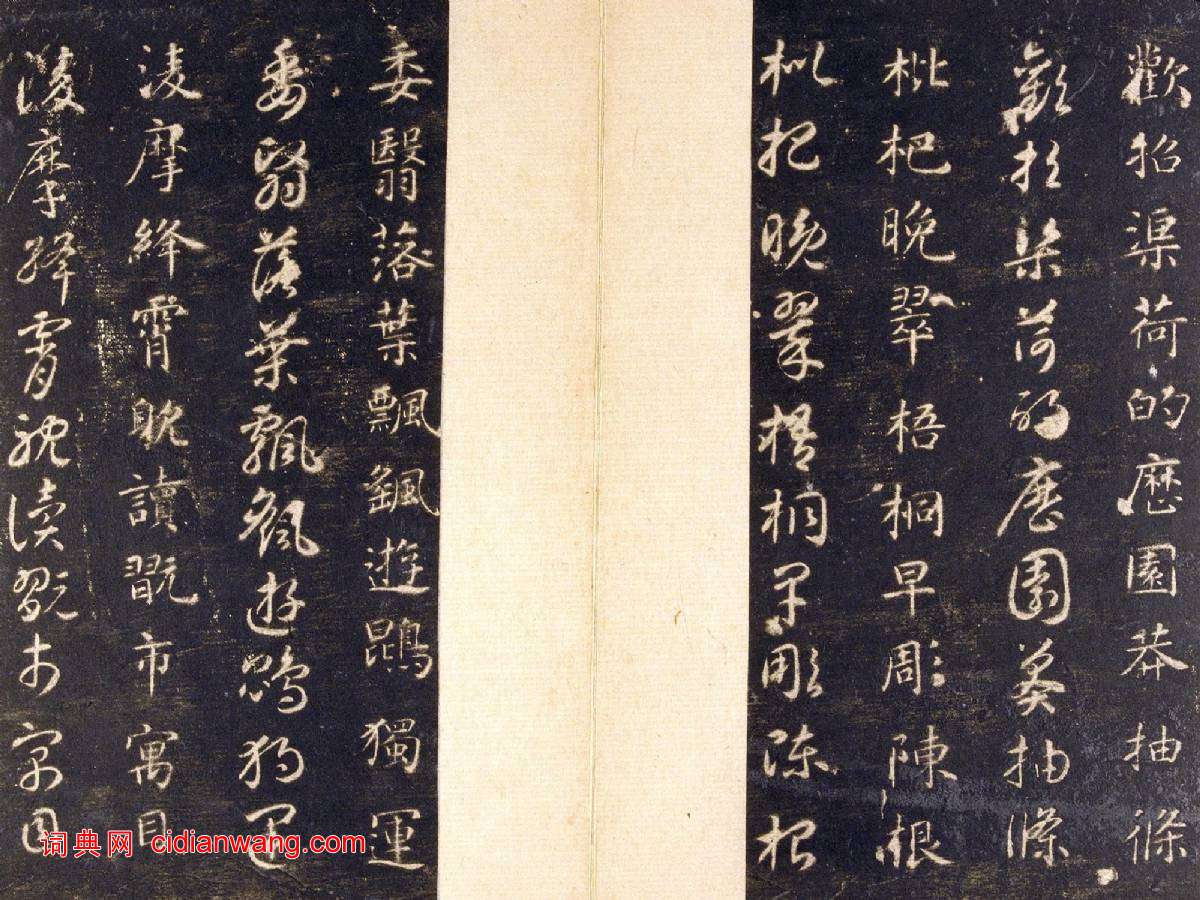 歡招渠荷的歷園莽抽條
歡招渠荷的歷園莽抽條
枇杷晚翠梧桐早彫陳根
枇杷晚翠梧桐早彫陳根
委翳落葉飄颻遊鵾獨運
委翳落葉飄颻遊鵾獨運
淩摩絳霄耽讀翫市寓目
淩摩絳霄耽讀翫市寓目
词典网 cidianwang.com